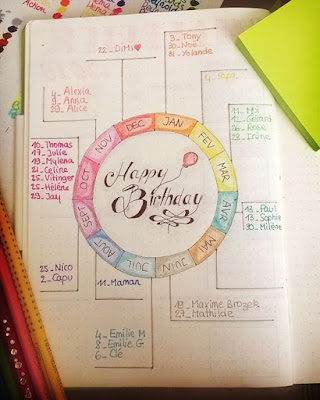 Action
22_ DiMi♥
3_ Tony
30_ Noé
31_ Yolande
4_ Papa
4_ Alexia
9_ Anna
29_ Alice
11_ Moi
14_ Gérard
26_ Rose
28_ Irène
10_ Thomas
17_ Julie
19_ Mylena
21_ Celine
25_ Vitinger
25_ Hélène
29_ Jay
JAN
FEV
MAR
AVR
MAI
JUIN
JUIL
AOUT
SEPT
OCT
NOV
DEC
Happy
Birthday
13_ Paul
13_ Sophie
30_ Milène
25_ Nico
2_ Capu
11_ Maman
Maxime Brozek
27_ Mathilde
4_ Emilie M
8_ Emilie G
6_ Clé